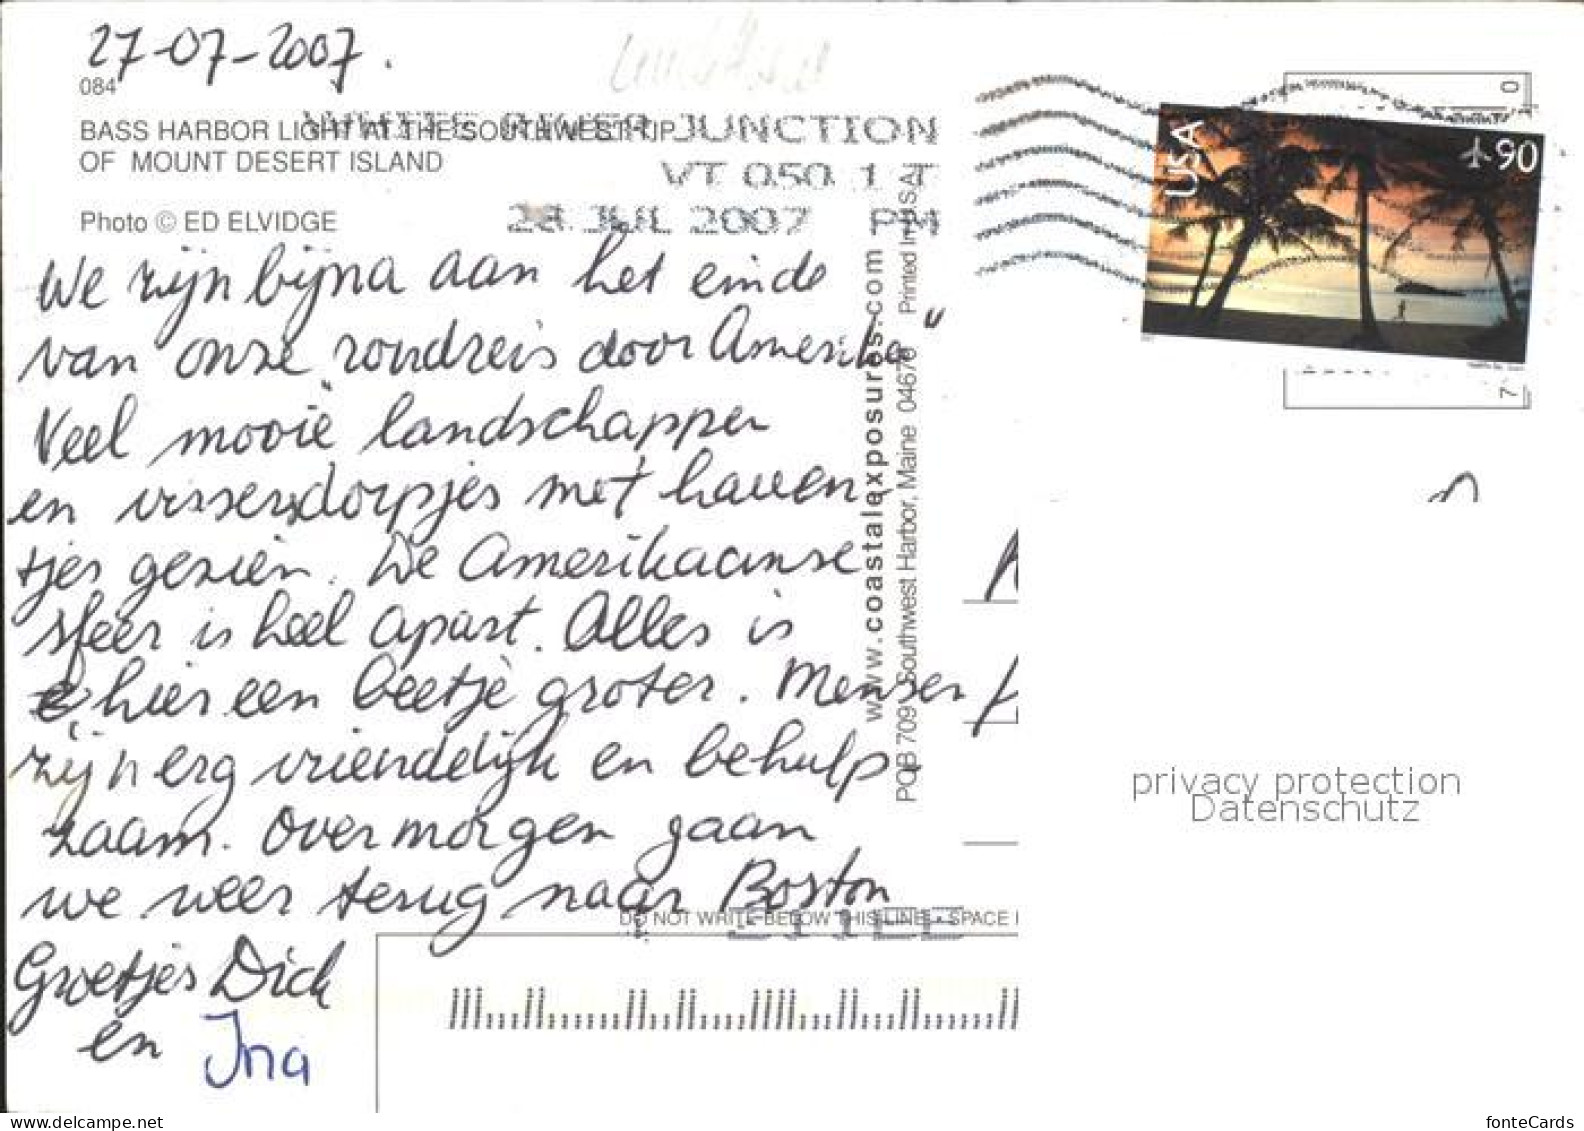 27-07-2007.
084
BASS HARBOR LIGHT AT THE SOUTHWEST TIP
OF MOUNT DESERT ISLAND
Photo © ED ELVIDGE
WHITE RIVER JUNCTION
VT 050 1 T
28 JUL 2007 PM
USA
90
0
7
We zijn bijna aan het einde
van onze rondreis door Amerika
Veel mooie landschappen
en vissersdorpjes met haven
tjes gezien. De Amerikaanse
sfeer is heel apart. Alles is
hier een beetje groter. Mensen
zijn erg vriendelijk en behulp
zaam. Overmorgen gaan
we weer terug naar Boston
Groetjes Dick
en Ina
www.coastalexposures.com
POB 709 Southwest Harbor, Maine 04679 Printed In USA
DO NOT WRITE BELOW THIS LINE - SPACE
privacy protection
Datenschutz
fonteCards